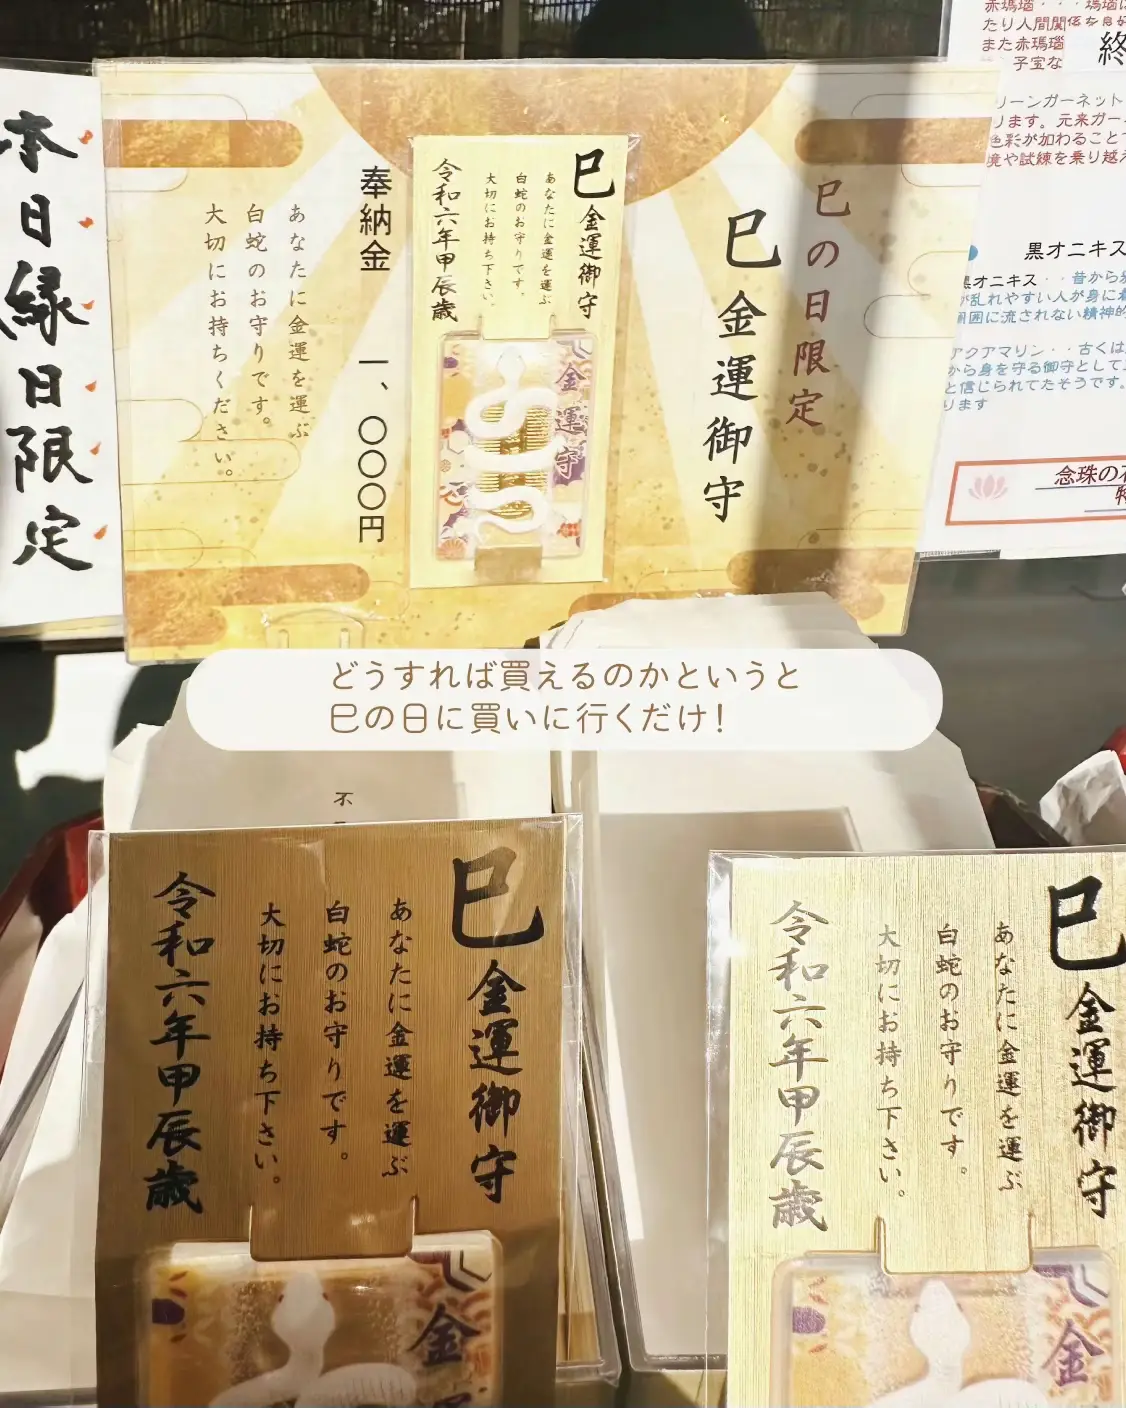 本日縁日限定
巳の日限定
巳金運御守
巳金運御守
あなたに金運を運ぶ
白蛇のお守りです。
大切にお持ち下さい。
令和六年甲辰歳
金運守
奉納金 一、〇〇〇円
あなたに金運を運ぶ
白蛇のお守りです。
大切にお持ちください。
赤瑪瑙・・・瑪瑙は
たり人間関係を良好
また赤瑪瑙
子宝な
終
リーンガーネット
ります。元来ガーネ
色彩が加わることで
境や試練を乗り越え
黒オニキス
黒オニキス・・昔から
が乱れやすい人が身に着
周囲に流されない精神的
アクアマリン・・古くは
から身を守る御守として
と信じられてたそうです。
ります
念珠の
特
どうすれば買えるのかというと
巳の日に買いに行くだけ！
不
巳金運御守
あなたに金運を運ぶ
白蛇のお守りです。
大切にお持ち下さい。
令和六年甲辰歳
金
巳金運御守
あなたに金運を運ぶ
白蛇のお守りです。
大切にお持ち下さい。
令和六年甲辰歳
金